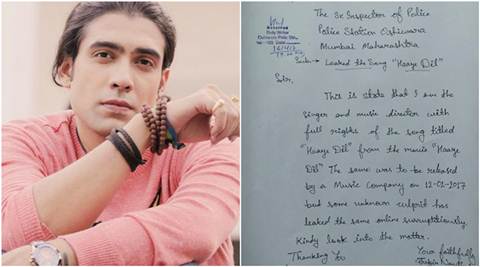 The Sr Inspector of Police
Police Station Oshiwara
Mumbai Maharashtra
Sub:- Leaked the Song "Haaye Dil"
Sir,
This is state that I am the
Singer and music director with
full rights of the song titled
"Haaye Dil" from the movie "Haaye
Dil" The same was to be released
by a Music Company on 12-02-2017
but some unknown culprit has
leaked the same online surruptitiously.
Kindy look into the matter.
Thanking Yo
Your faithfully